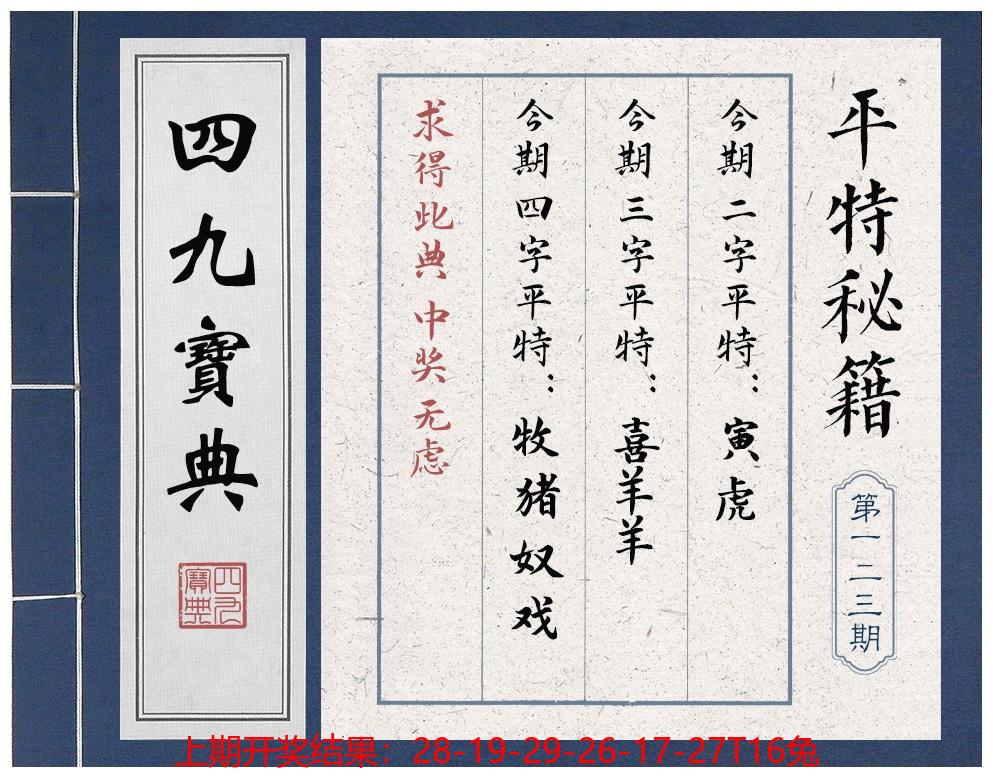 平特秘籍
第一二三期
今期二字平特：寅虎
今期三字平特：喜羊羊
今期四字平特：牧猪奴戏
求得此典 中奖无虑
四九寶典
四九寶典
上期开奖结果：28-19-29-26-17-27T16兔